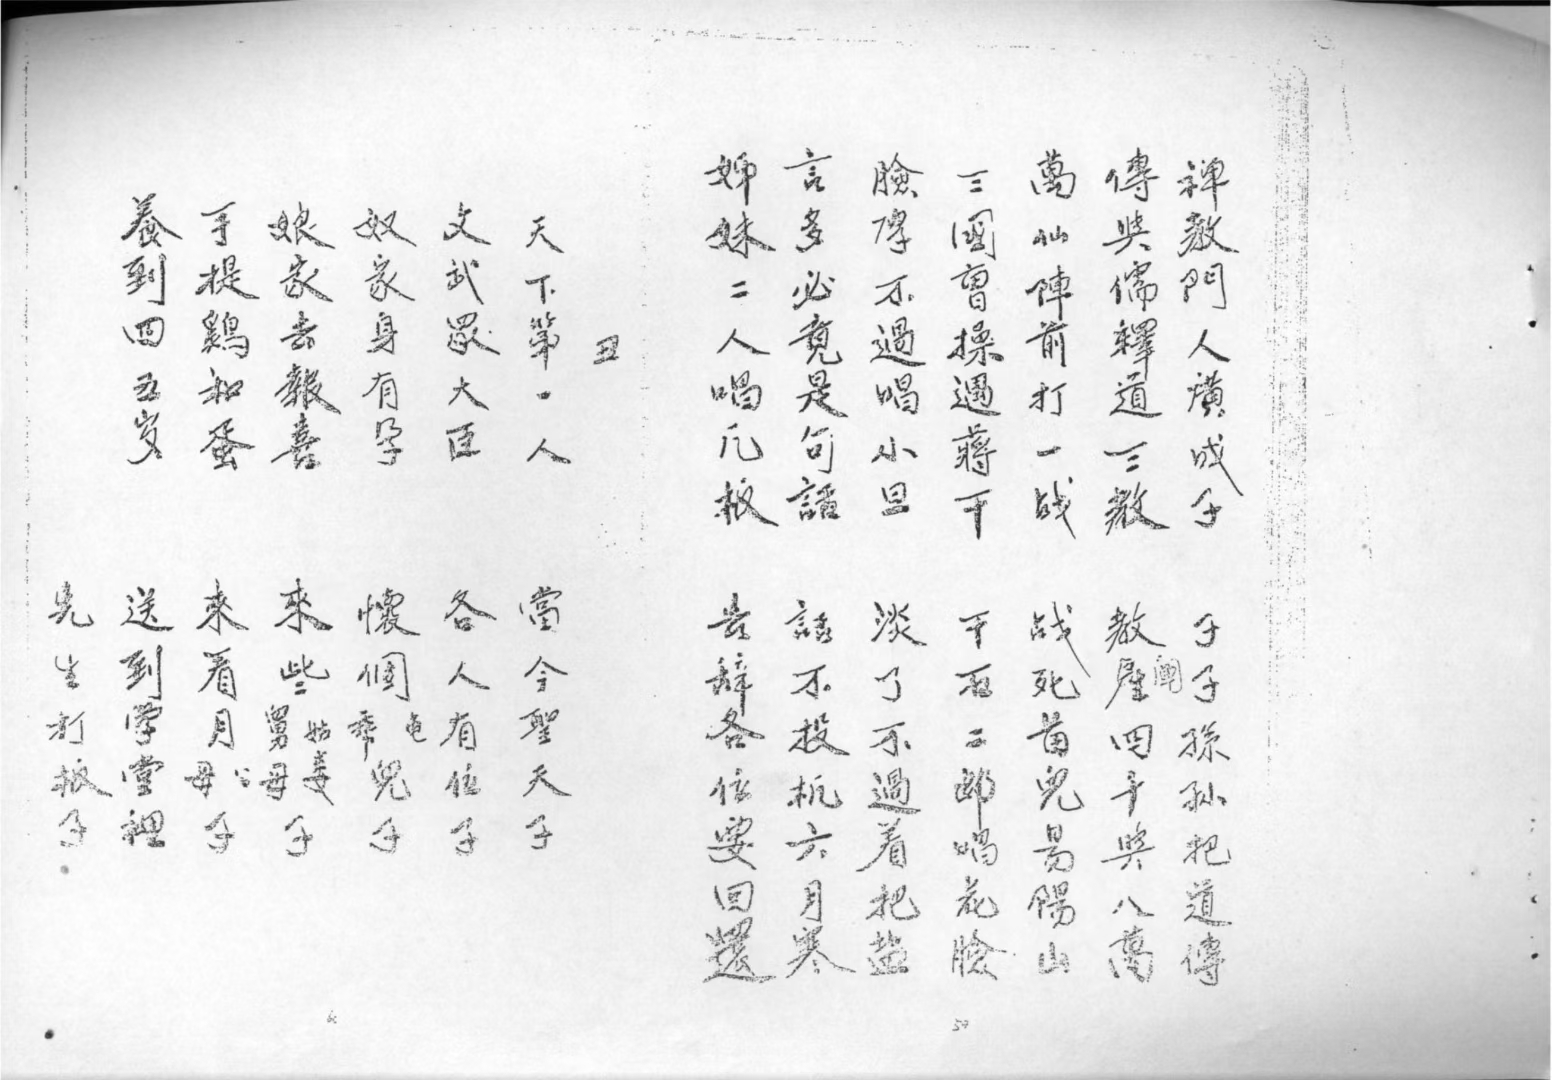 禅教門人廣成子 子子孫孫把道傳
傳與儒釋道三教 教闡四千與八萬
萬仙陣前打一战 战死首兒易陽山
三國曹操遇蔣干 干而二郎唱花臉
臉厚不過唱小旦 淡了不過着把盐
言多必竟是句話 話不投机六月寒
姊妹二人唱几板 告辞各位要回還
丑
天下第一人 當今聖天子
文武眾大臣 各人有位子
奴家身有孕 懷個乖兒子
娘家去報喜 來些姑姜舅母子
手提鷄和蛋 來看月母公子
養到四五岁 送到学堂裡
先生打板子
59
60